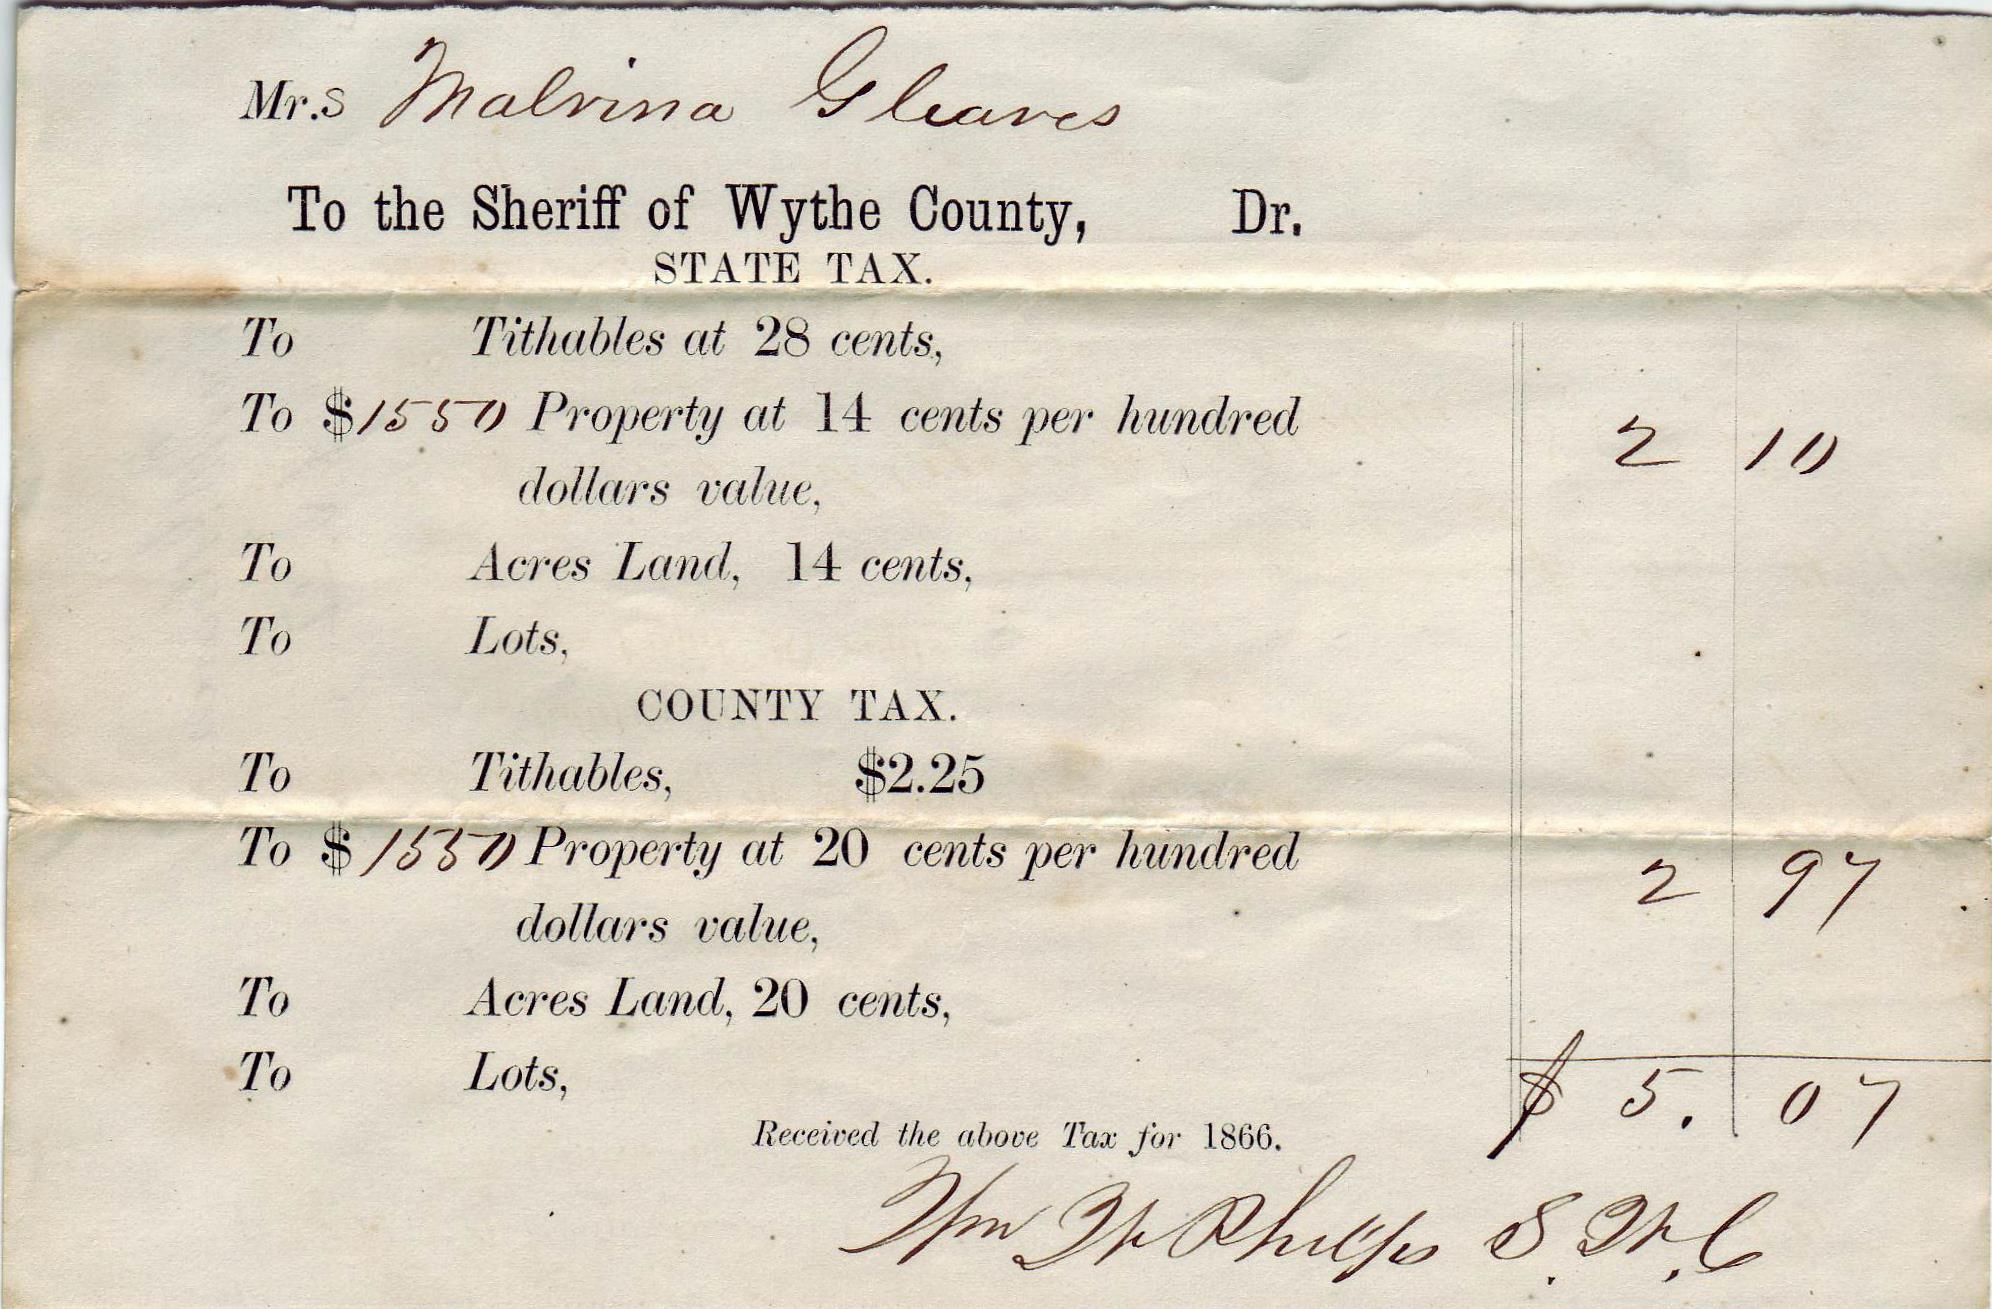 Mr.s Malvina Gleaves
To the Sheriff of Wythe County, Dr.
STATE TAX.
To Tithables at 28 cents,
To $1550 Property at 14 cents per hundred
dollars value, 2 10
To Acres Land, 14 cents,
To Lots,
COUNTY TAX.
To Tithables, $2.25
To $1550 Property at 20 cents per hundred
dollars value, 2 97
To Acres Land, 20 cents,
To Lots,
$ 5. 07
Received the above Tax for 1866.
Wm W Phelps S. W. C